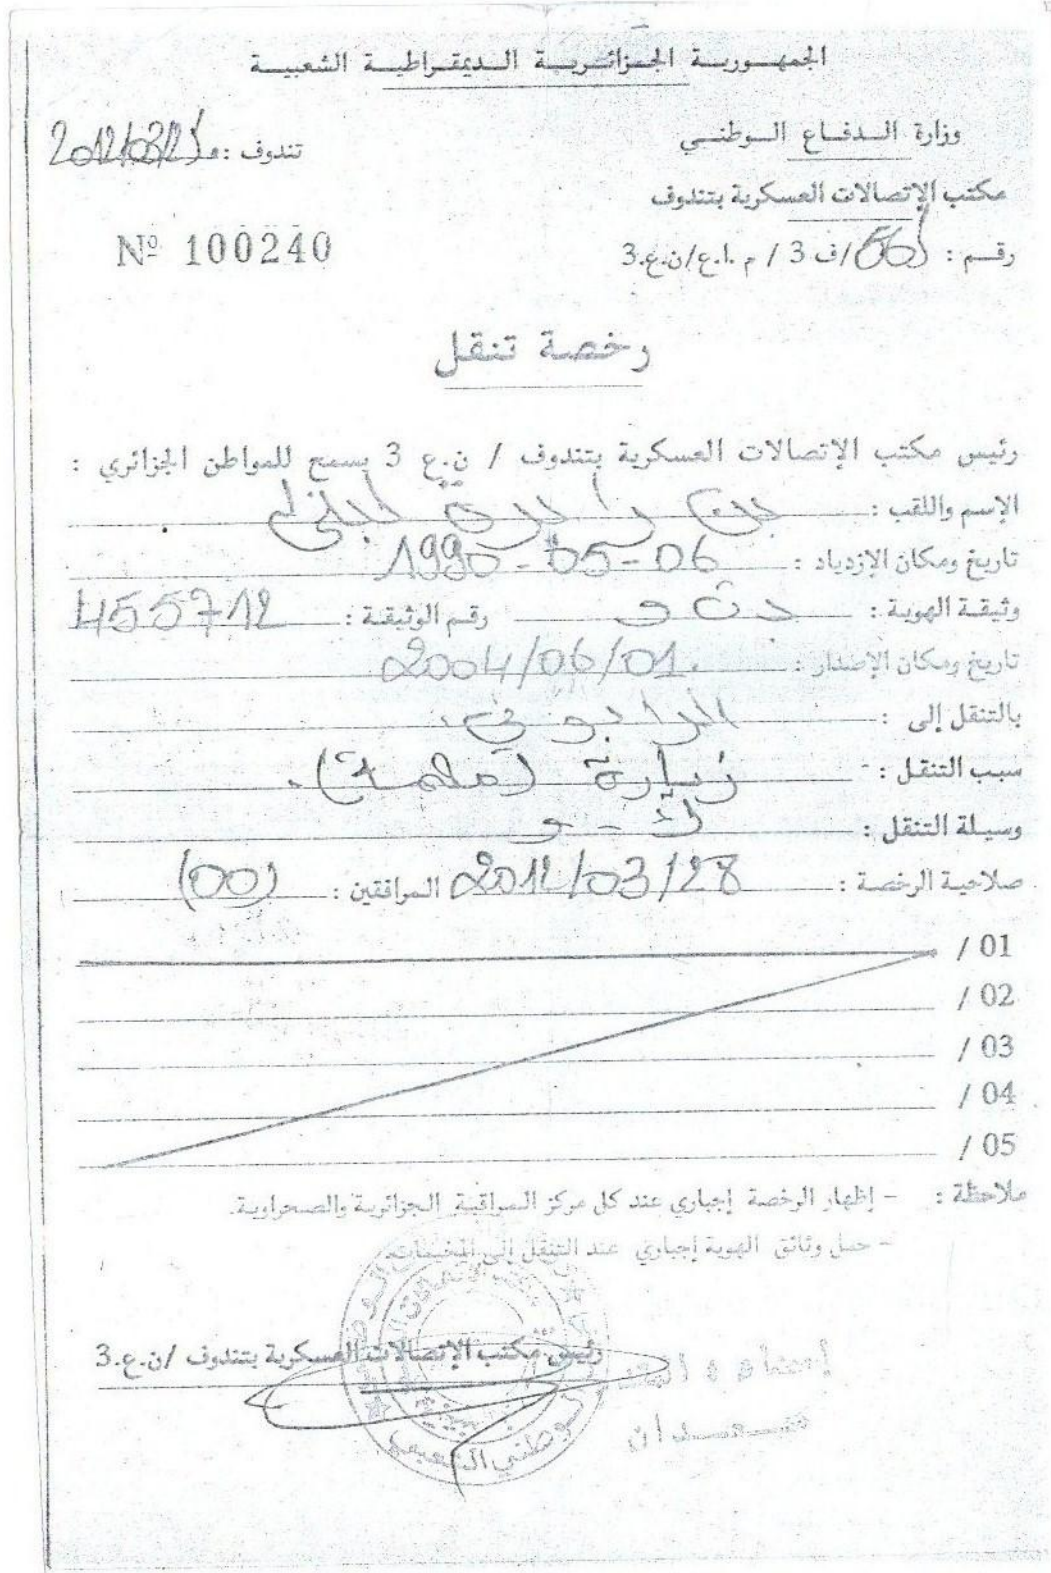 الجمهورية الجزائرية الديمقراطية الشعبية
وزارة الدفاع الوطني
تندوف :
مكتب الإتصالات العسكرية بتندوف
رقم : /ف 3 / م .ا.ع/ن.ع.3
Nº 100240
رخصة تنقل
رئيس مكتب الإتصالات العسكرية بتندوف / ن.ع 3 يسمح للمواطن الجزائري :
الإسم واللقب : بن
تاريخ ومكان الإزدياد : 06-05-1990
وثيقة الهوية : رقم الوثيقة : 455712
تاريخ ومكان الإصدار : 2004/06/01
بالتنقل إلى : الرابوني
سبب التنقل : زيارة (مهمة).
وسيلة التنقل :
صلاحية الرخصة : 2012/03/28 المرافقين : (00)
01 /
02 /
03 /
04 /
05 /
ملاحظة : - إظهار الرخصة إجباري عند كل مركز المراقبة الجزائرية والصحراوية.
- حمل وثائق الهوية إجباري عند التنقل إلى المخيمات.
رئيس مكتب الإتصالات العسكرية بتندوف /ن.ع.3